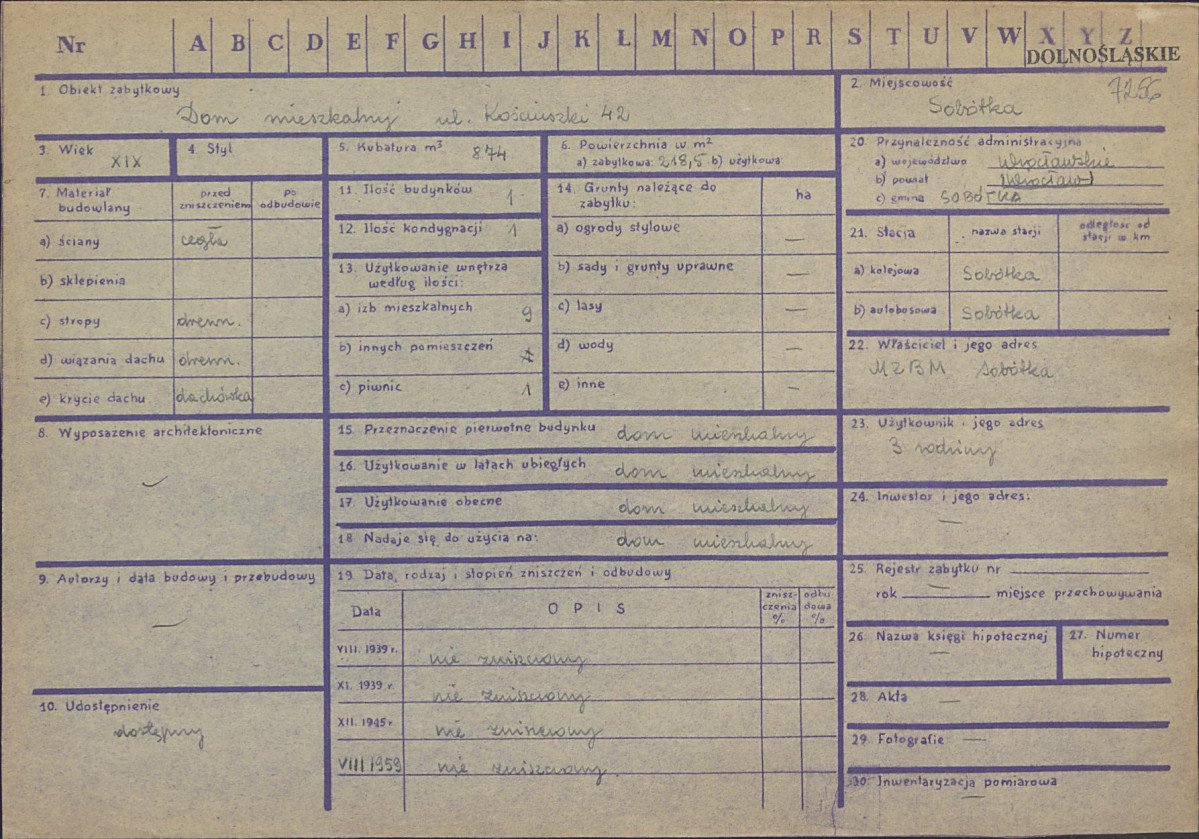 Nr A B C D E F G H I J K L M N O P R S T U V W X Y Z
DOLNOŚLĄSKIE
1. Obiekt zabytkowy
Dom mieszkalny ul. Kościuszki 42
2. Miejscowość
7256
Sobótka
3. Wiek
XIX
4. Styl
5. Kubatura m³
874
6. Powierzchnia w m²
a) zabytkowa: 218,5 b) użytkowa
20. Przynależność administracyjna
a) województwo Wrocławskie
b) powiat Wrocław
c) gmina SOBÓTKA
7. Materiał budowlany
przed zniszczeniem
po odbudowie
a) ściany cegła
b) sklepienia
c) stropy drewn.
d) wiązania dachu drewn.
e) krycie dachu dachówka
11. Ilość budynków 1
12. Ilość kondygnacji 1
13. Użytkowanie wnętrza według ilości:
a) izb mieszkalnych 9
b) innych pomieszczeń
c) piwnic 1
14. Grunty należące do zabytku:
ha
a) ogrody stylowe —
b) sady i grunty uprawne —
c) lasy —
d) wody —
e) inne —
21. Stacja
nazwa stacji
odległość od stacji w km
a) kolejowa Sobótka
b) autobusowa Sobótka
22. Właściciel i jego adres
MZBM Sobótka
8. Wyposażenie architektoniczne
15. Przeznaczenie pierwotne budynku dom mieszkalny
16. Użytkowanie w latach ubiegłych dom mieszkalny
17. Użytkowanie obecne dom mieszkalny
18 Nadaje się do użycia na: dom mieszkalny
23. Użytkownik i jego adres
3 rodziny
24. Inwestor i jego adres:
—
9. Autorzy i data budowy i przebudowy
—
19. Data, rodzaj i stopień zniszczeń i odbudowy
Data
OPIS
zniszczenia %
odbudowa %
VIII. 1939 r. nie zniszczony
XI. 1939 r. nie zniszczony
XII. 1945 r. nie zniszczony
VIII 1959 nie zniszczony.
25. Rejestr zabytku nr
rok — miejsce przechowywania
26. Nazwa księgi hipotecznej
—
27. Numer hipoteczny
10. Udostępnienie
dostępny
28. Akta —
29. Fotografie —
30. Inwentaryzacja pomiarowa
—